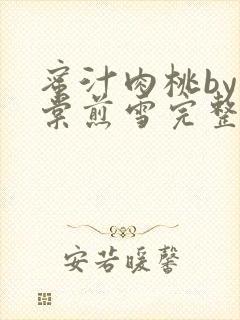 蜜汁肉桃by
棠煎雪完整
安若暖馨